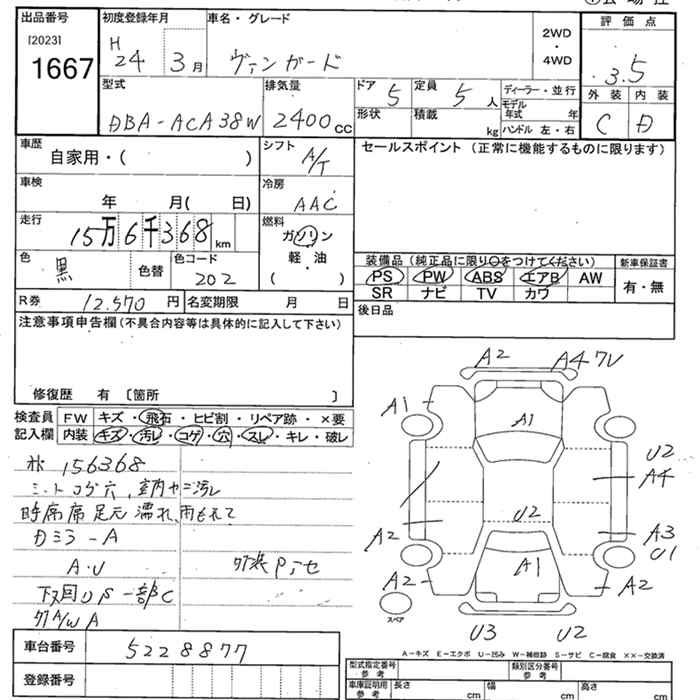 出品番号 初度登録年月 車名・グレード 2WD・4WD 評価点
[2023] 1667 H 24 3月 ヴァンガード 3.5
型式 排気量 ドア 5 定員 5人 ディーラー・並行 外装 内装
DBA-ACA38W 2400cc 形状 積載 kg モデル年式 年 C D
ハンドル 左・右
車歴 自家用・( ) シフト A/T セールスポイント(正常に機能するものに限ります)
車検 年 月( 日) 冷房 AAC
走行 15万6千368km 燃料 ガソリン
軽・油
( )
色 黒 色替 色コード 202
装備品(純正品に限り○をつけてください) 新車保証書
PS PW ABS エアB AW 有・無
SR ナビ TV カワ
R券 12,570円 名変期限 月 日 後日品
注意事項申告欄(不具合内容等は具体的に記入して下さい)
修復歴 有 〔箇所 〕
検査員記入欄 FW キズ・飛石・ヒビ割・リペア跡・×要
内装 キズ・汚レ・コゲ・穴・スレ・キレ・破レ
156368
シートコゲ穴、室内ヤニ汚レ
席足元濡れ、雨もれて
Dミラ-A
A・U
下回リS 一部C
ガAW A
A2 A4 7U
A1 A1
U2
A4
U2
A2 A3
U1
A1
A2 A2
スペア
U3 U2
A-キズ E-エクボ U-凹み W-補修跡 S-サビ C-腐食 ××-交換済
車台番号 5228877
登録番号
型式指定番号 参考 類別区分番号 参考
車庫証明用 参考 長さ cm 幅 cm 高さ cm